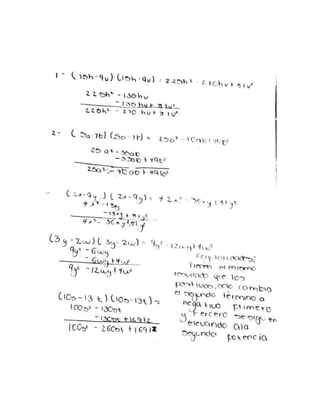 1- (15h-9v) (15h-9v) = 225h² - 270hv + 81v²
225h² - 130hv
- 130hv + 81v²
225h² - 270 hv + 81v²
2- (5a-7b) (5a-7b) = 25a² - 70ab + 49b²
25a² - 35ab
- 35ab + 49b²
25a² - 70ab + 49b²
(2x-9y) (2x-9y) = 42x² - 36xy + 81y²
4x² - 18xy
- 18xy + 81y²
4x² - 36xy + 81y²
(3y-2w) (3y-2w) = 9y² - 12wy + 4w²
9y² - 6wy
- 6wy + 4w²
9y² - 12wy + 4w²
tienen el mismo
resultado que los
positivos, solo cambia
el segundo término a
negativo primero
y tercero se sigue
elevando a la
segunda potencia
(10s-13t) (10s-13t) =
100s² - 130st
- 130st + 169t2
100s² - 260st + 169t2